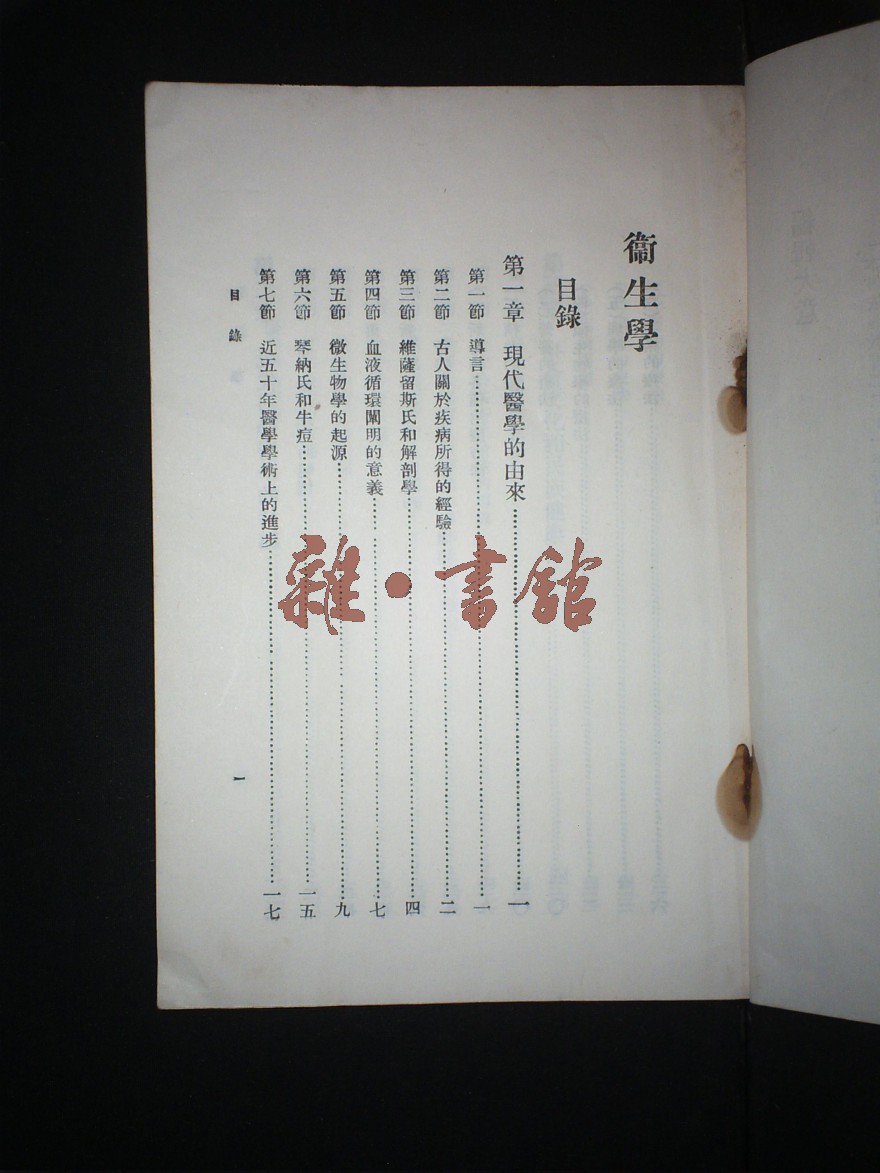 衞生學
目錄
第一章 現代醫學的由來…………一
第一節 導言…………一
第二節 古人關於疾病所得的經驗…………二
第三節 維薩留斯氏和解剖學…………四
第四節 血液循環闡明的意義…………七
第五節 微生物學的起源…………九
第六節 琴納氏和牛痘…………一五
第七節 近五十年醫學學術上的進步…………一七
目錄
一
雜·書館